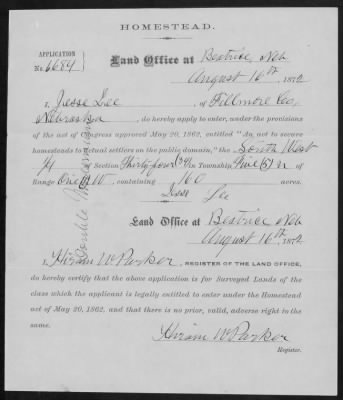 HOMESTEAD.
APPLICATION
No. 6684
Land Office at Beatrice Neb
August 16th, 1872
I, Jesse Lee, of Fillmore Co,
Nebraska, do hereby apply to enter, under the provisions
of the act of Congress approved May 20, 1862, entitled "An act to secure
homesteads to actual settlers on the public domain," the South West
1/4 of Section Thirty four (34) in Township Five (5) N of
Range One W, containing 160 acres.
Jesse Lee
Land Office at Beatrice Neb
August 16th, 1872
I, Hiram W Parker, REGISTER OF THE LAND OFFICE,
do hereby certify that the above application is for Surveyed Lands of the
class which the applicant is legally entitled to enter under the Homestead
act of May 20, 1862, and that there is no prior, valid, adverse right to the
same.
Hiram W Parker
Register.
Double Minimum